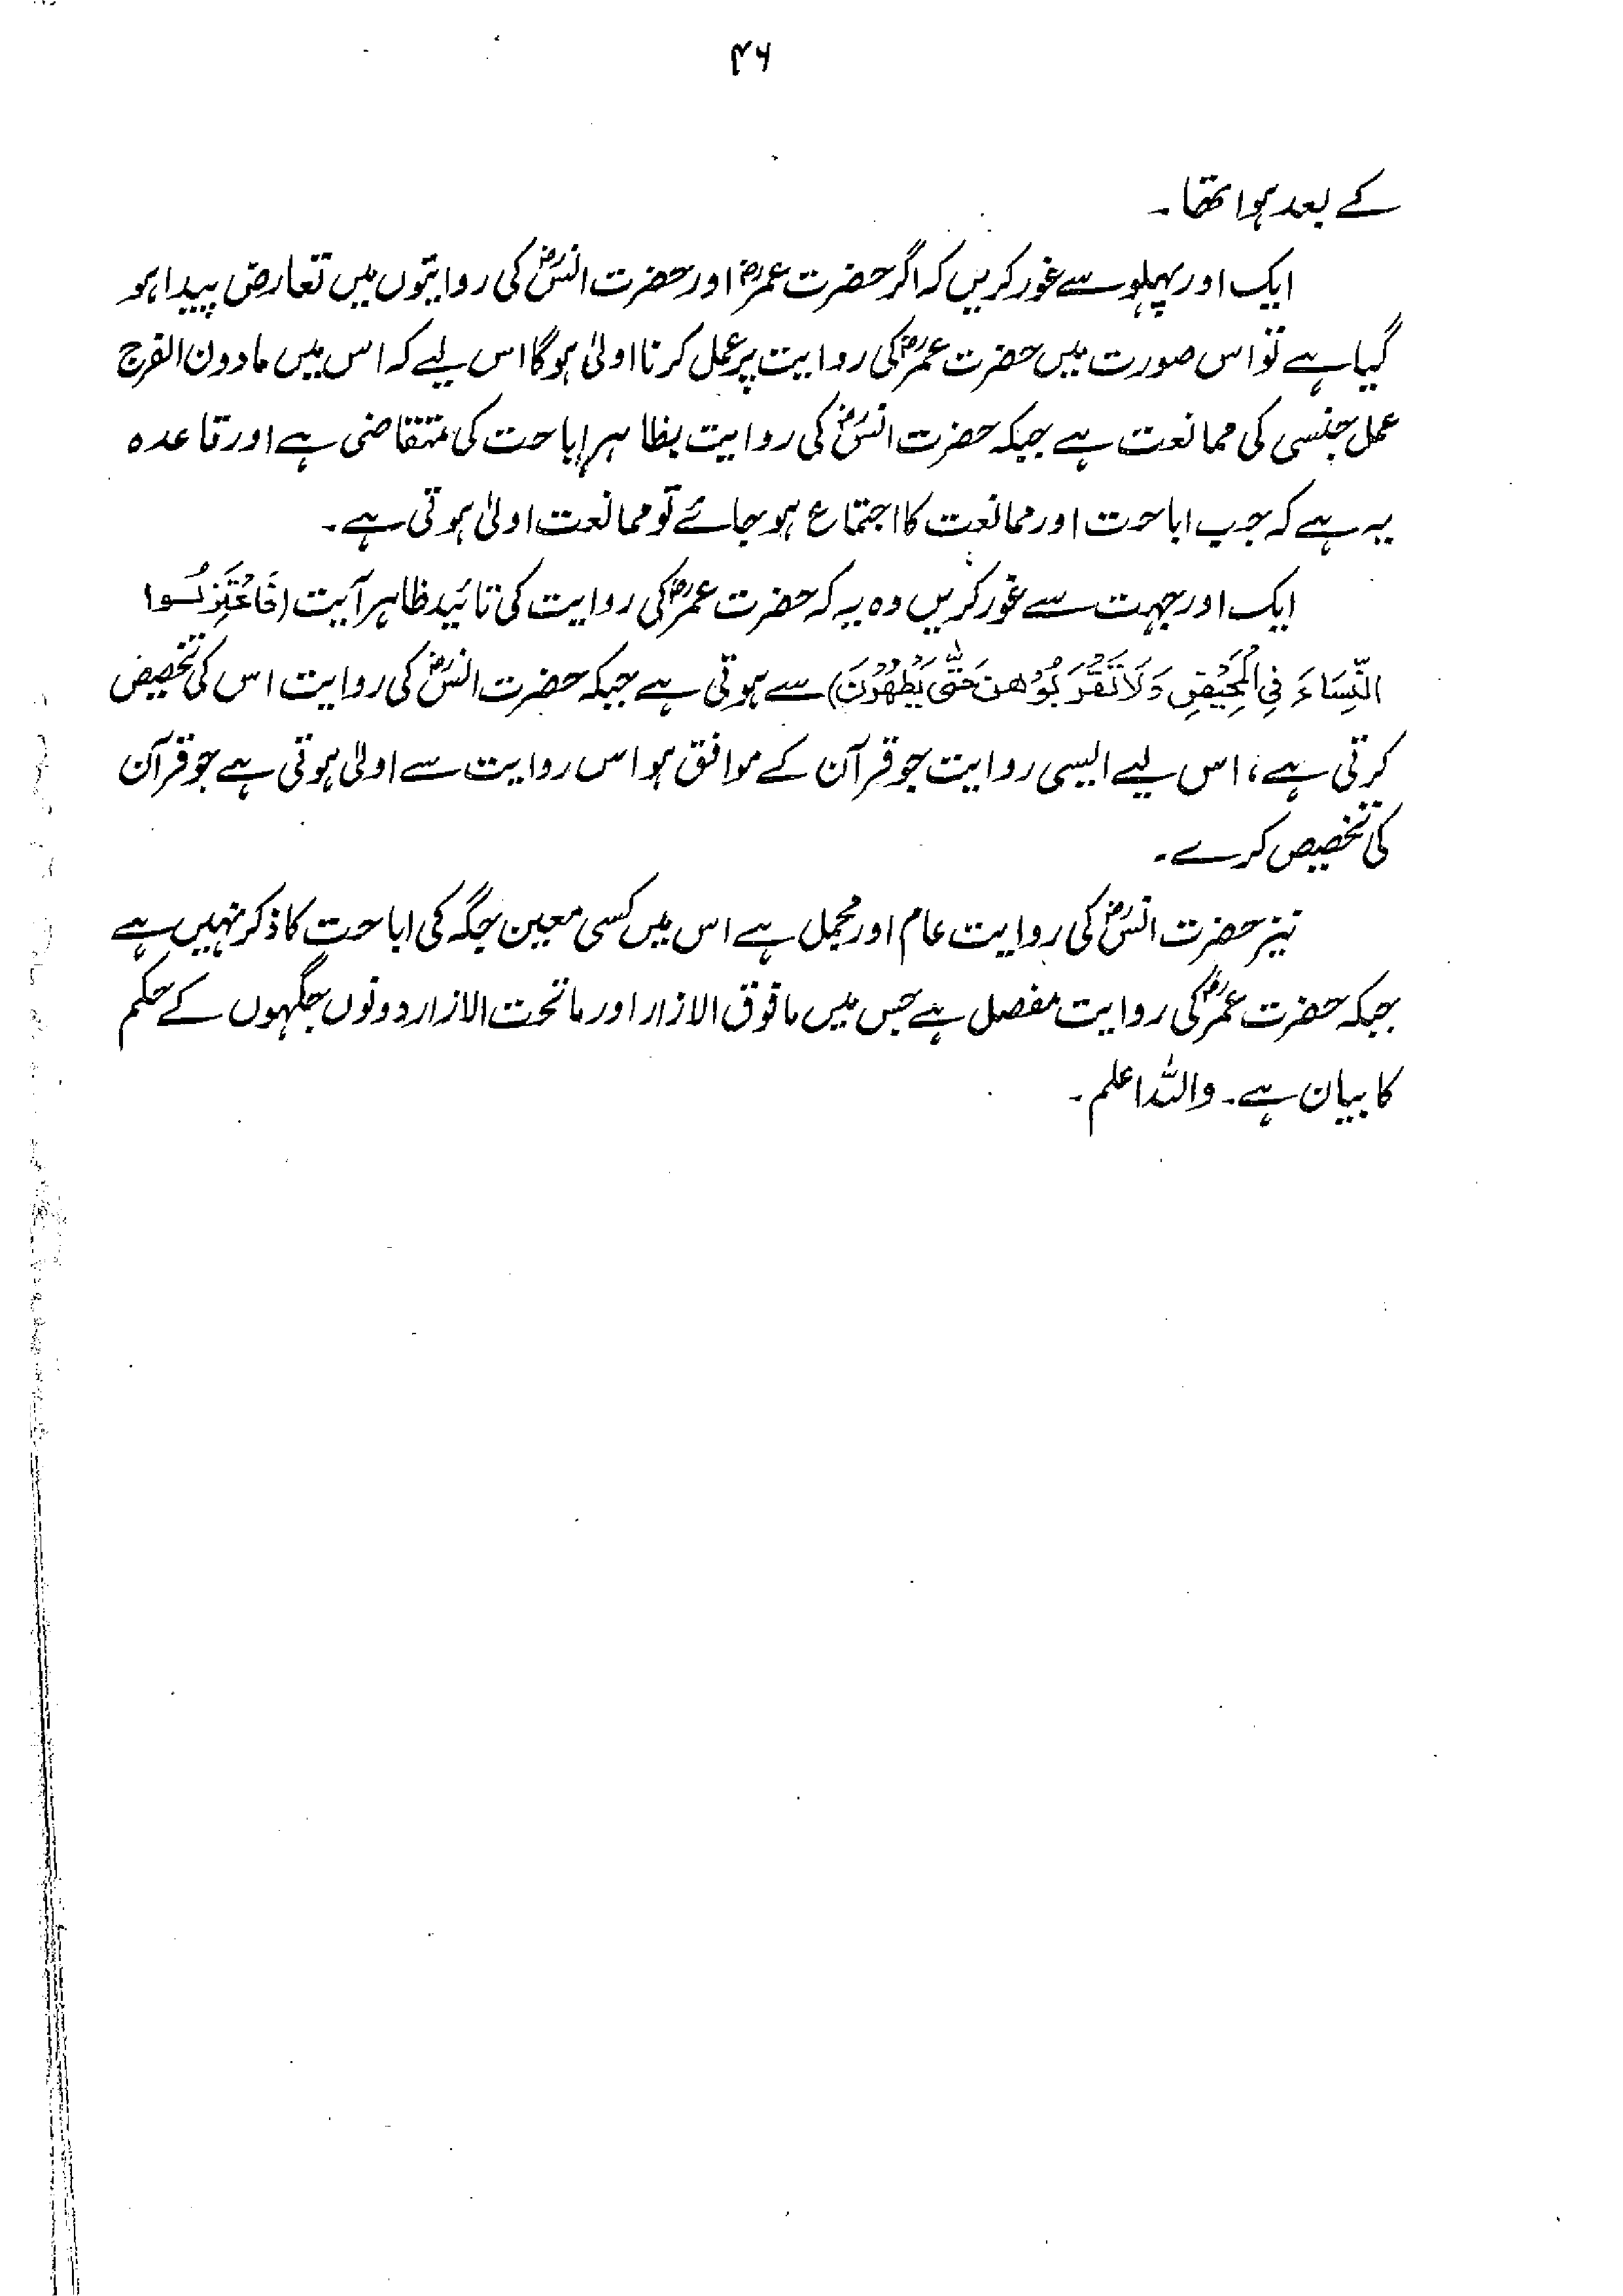 ۴۶
کے بعد ہوا تھا۔
ایک اور پہلو سے غور کریں کہ اگر حضرت عمرؓ اور حضرت انسؓ کی روایتوں میں تعارض پیدا ہو
گیا ہے تو اس صورت میں حضرت عمرؓ کی روایت پر عمل کرنا اولیٰ ہوگا اس لیے کہ اس میں مادون الفرج
عمل جنسی کی ممانعت ہے جبکہ حضرت انسؓ کی روایت بظاہر اباحت کی متقاضی ہے اور قاعدہ
یہ ہے کہ جب اباحت اور ممانعت کا اجتماع ہو جائے تو ممانعت اولیٰ ہوتی ہے۔
ایک اور جہت سے غور کریں وہ یہ کہ حضرت عمرؓ کی روایت کی تائید ظاہر آیت (فَاعْتَزِلُوا
النِّسَاءَ فِي الْمَحِيْضِ وَلَا تَقْرَبُوْهن حَتّٰى يَطْهُرْنَ) سے ہوتی ہے جبکہ حضرت انسؓ کی روایت اس کی تخصیص
کرتی ہے، اس لیے ایسی روایت جو قرآن کے موافق ہو اس روایت سے اولیٰ ہوتی ہے جو قرآن
کی تخصیص کرے۔
نیز حضرت انسؓ کی روایت عام اور مجمل ہے اس میں کسی معین جگہ کی اباحت کا ذکر نہیں ہے
جبکہ حضرت عمرؓ کی روایت مفصل ہے جس میں مافوق الازار اور ماتحت الازار دونوں جگہوں کے حکم
کا بیان ہے۔ واللہ اعلم۔